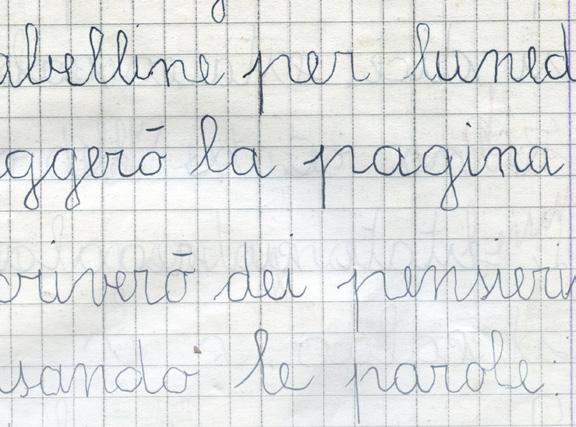 abelline per luned
ggerò la pagina
criverò dei pensieri
usando le parole: